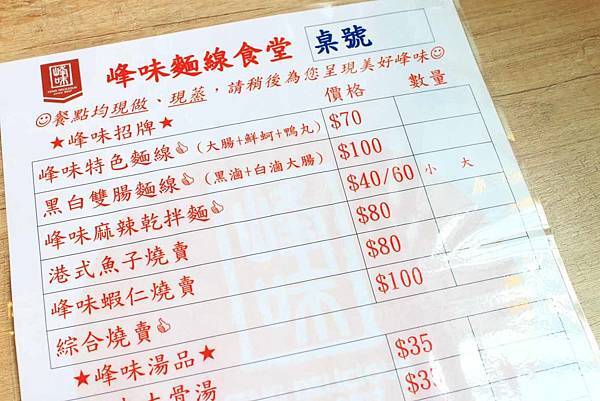 峰味
峰味麵線食堂 桌號
☺餐點均現做、現蒸,請稍後為您呈現美好峰味☺
★峰味招牌★ 價格 數量
峰味特色麵線👍(大腸+鮮蚵+鴨丸) $70
黑白雙腸麵線👍(黑滷+白滷大腸) $100
峰味麻辣乾拌麵👍 $40/60 小 大
港式魚子燒賣 $80
峰味蝦仁燒賣 $80
綜合燒賣👍 $100
★峰味湯品★
骨湯 $35